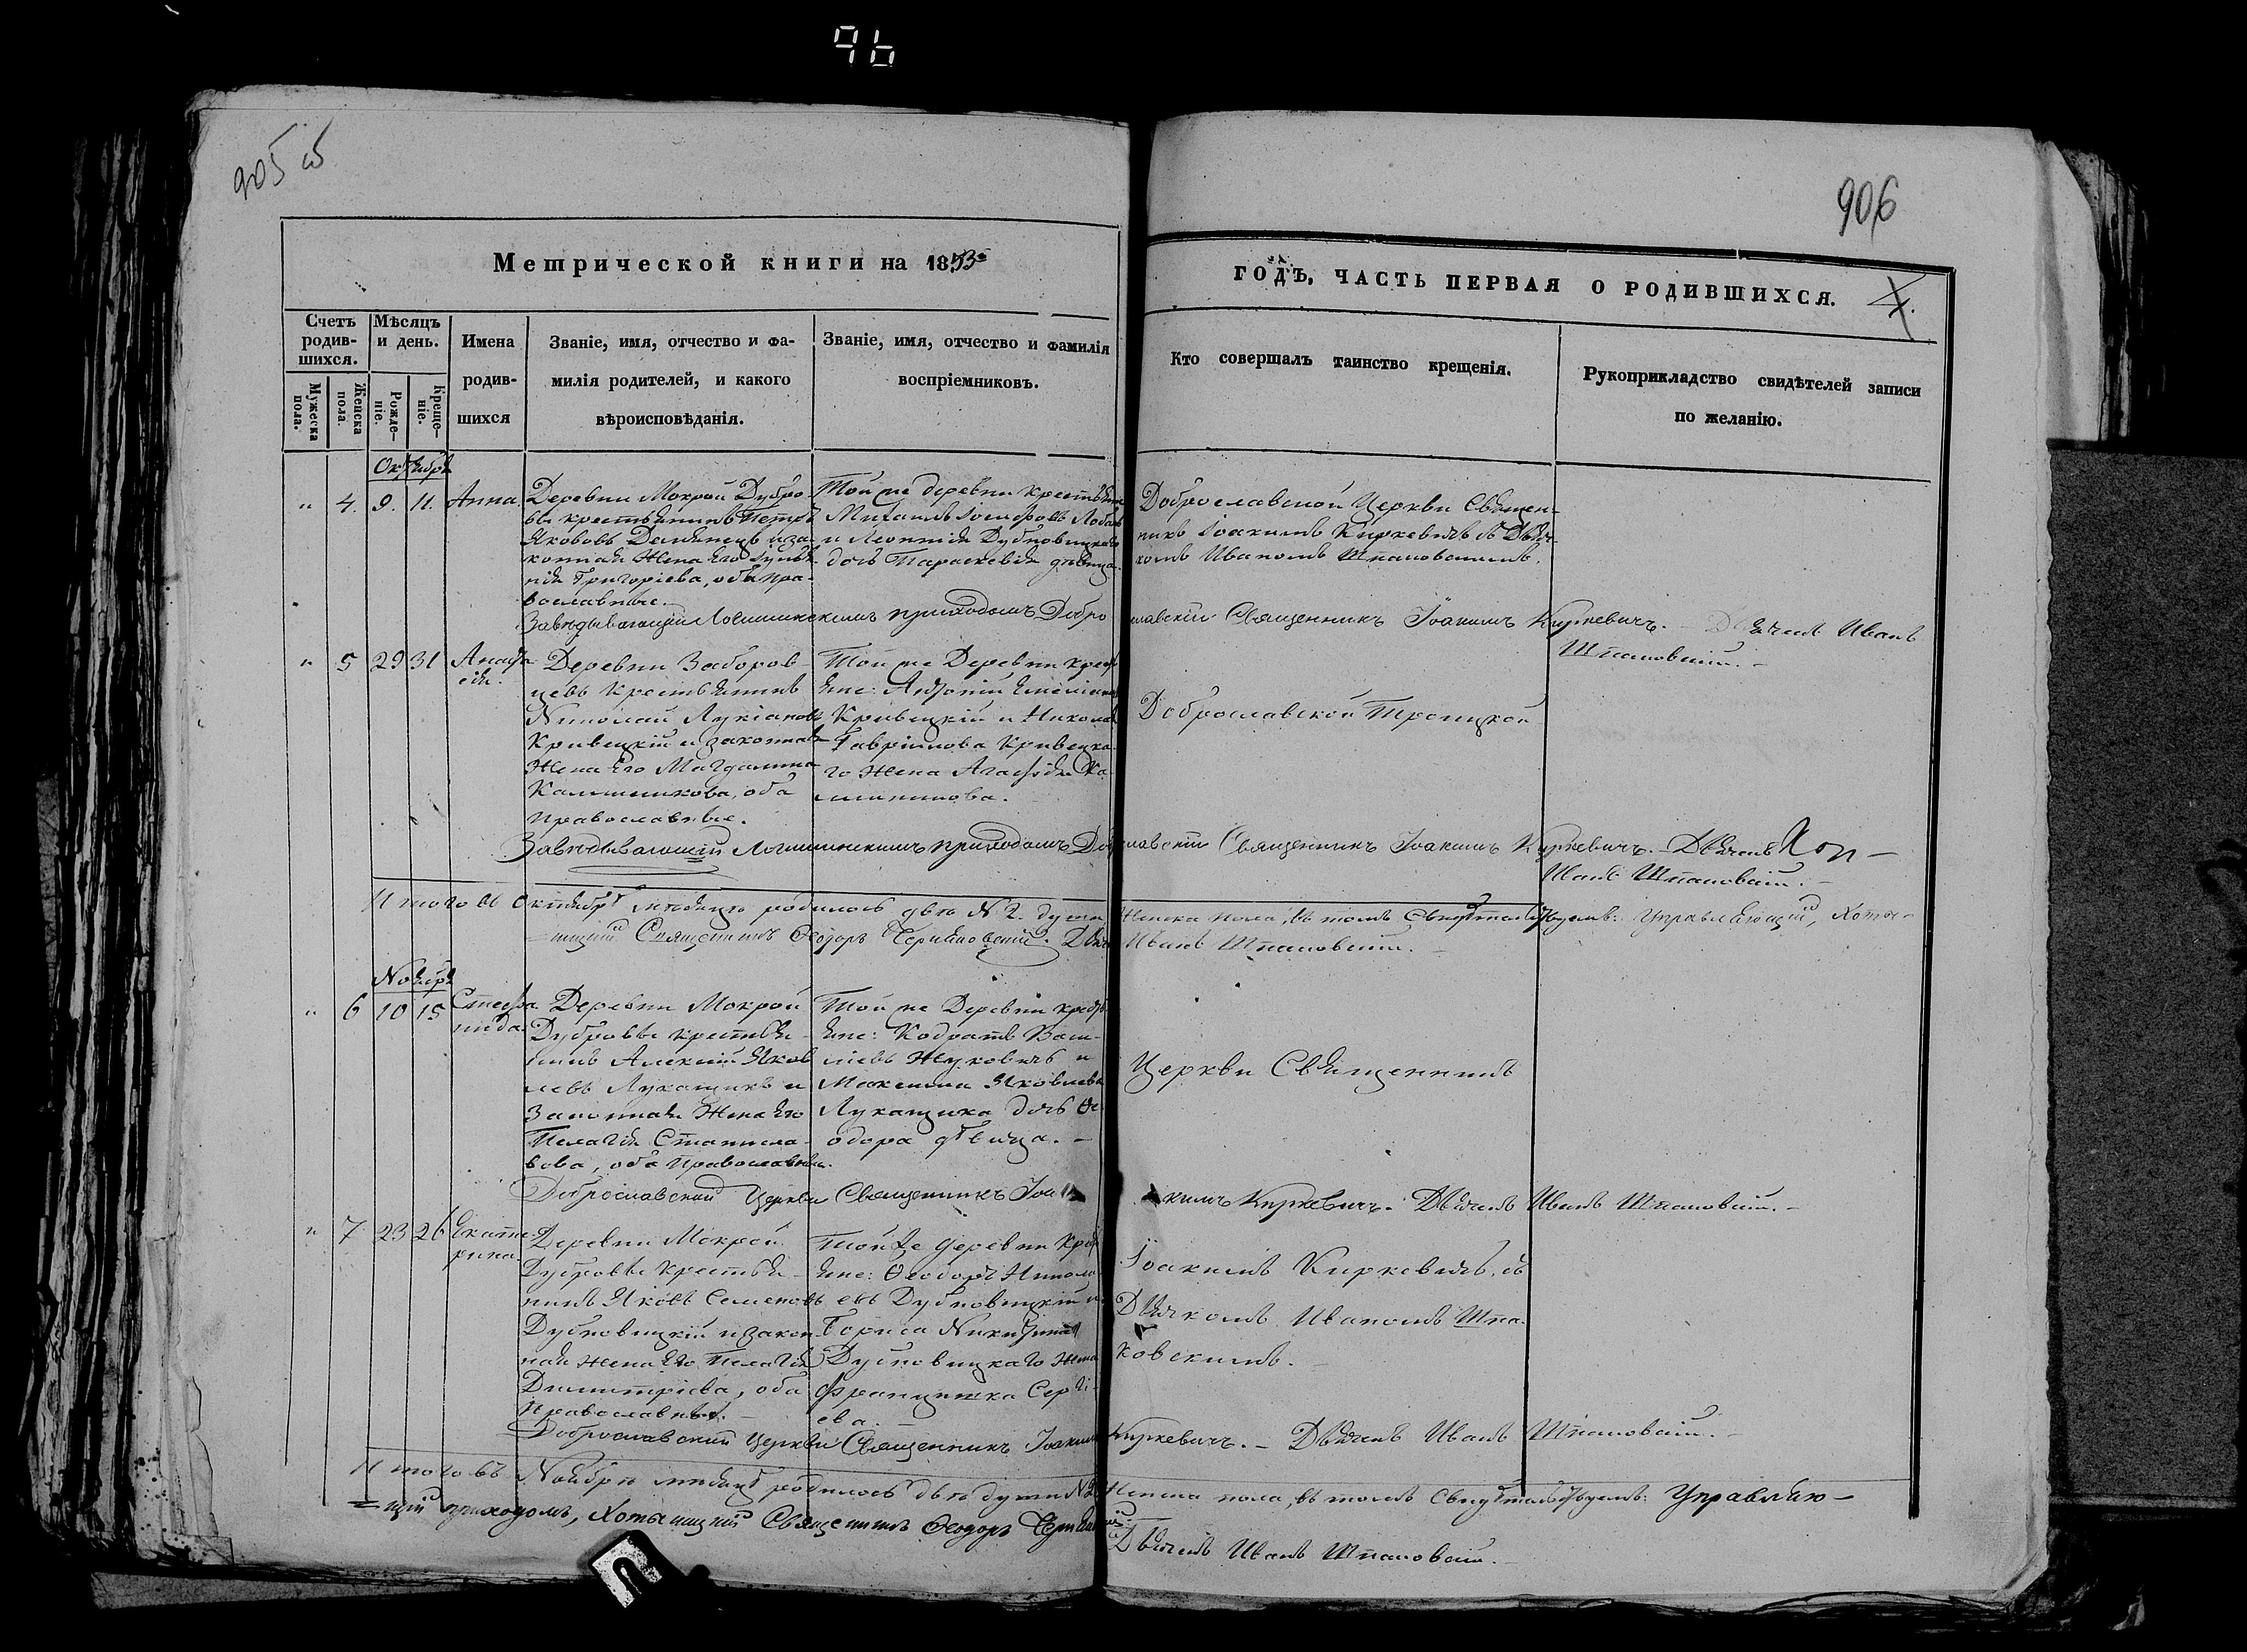 905 об
906
Метрической книги на 1853й
годъ, часть первая о родившихся.
4.
Счетъ родив-шихся.
Мѣсяцъ и день.
Имена родив-шихся
Званіе, имя, отчество и фа-
милія родителей, и какого
вѣроисповѣданія.
Званіе, имя, отчество и фамилія
воспріемниковъ.
Кто совершалъ таинство крещенія.
Рукоприкладство свидѣтелей записи
по желанію.
Мужеска пола.
Женска пола.
Рожде-ніе.
Креще-ніе.
Октябрь
" 4. 9. 11. Анна.
Деревни Мокрой Дубро-
вы крестьянинъ Петръ
Якововъ и за-
конная жена его
Григоріева, оба пра-
вославные.
Той же деревни крестьяне
Михаилъ Іосифовъ
и Леонтія Дубновицкаго
дочь Параскевія дѣвица.
Доброславской Церкви Священ-
никъ Іоакимъ Киркевичъ съ Дьяч-
комъ Иваномъ Шпаковскимъ.
Завѣдывающій Логишинскимъ приходомъ Добро
славскій Священникъ Іоакимъ Киркевичъ. – Дьячекъ Иванъ
Шпаковскій. –
" 5 29 31 Анафа-
сія.
Деревни Заборов-
цевъ крестьянинъ
Николай Лукіановъ
Кривецкій и законная
жена его Магдалина
Калинникова, оба
православные.
Той же Деревни крест
яне: Антоній Емеліановъ
Кривецкій и Никола
Гавріилова Кривецка-
го жена Агафія Ка-
линникова.
Доброславской Троицкой
Завѣдывающій Логишинскимъ приходомъ Доб
славскій Священникъ Іоакимъ Киркевичъ. – Дьячекъ
Иванъ Шпаковскій. –
Итого въ Октябрѣ мѣсяцѣ родилось двѣ № 2. души
женска пола, въ томъ Свидѣтельствуемъ: Управляющій, Хоты-
ницкій Священникъ Ѳеодоръ Черняковскій. Дьяч
Иванъ Шпаковскій. –
Ноябрь
" 6 10 15 Стефа
нида.
Деревни Мокрой
Дубровы крестья-
нинъ Алексій Яков
левъ Лукащикъ и
Законная Жена его
Пелагія Станисла-
вова, оба Православные.
Той же Деревни крестья
яне: Кодратъ Васи-
ліевъ Жуковичъ и
Максима Яковлева
Лукащика дочь Ѳе-
одора дѣвица. –
Церкви Священникъ
Доброславской Церкви Священникъ Іоа
кимъ Киркевичъ. Дьячекъ Иванъ Шпаковскій. –
" 7 23 26 Екате-
рина.
Деревни Мокрой
Дубровы Крестья-
нинъ Яковъ Семеновъ
Дубновицкій и закон-
ная жена его Пелагія
Димитріева, оба
Православные. –
Той же деревни Крест
яне: Ѳеодоръ Никола
евъ Дубновицкій и
Бориса Никитина
Дубновицкаго жена
Францишка Сергі-
ева. –
Іоакимъ Киркевичъ, съ
Дьячкомъ Иваномъ Шпа-
ковскимъ. –
Доброславской Церкви Священникъ Іоаким
Киркевичъ. – Дьячекъ Иванъ Шпаковскій. –
Итого въ Ноябрѣ мѣсяцѣ родилось двѣ души № 2
Женска пола, въ томъ Свидѣтельствуемъ: Управляю-
щій приходомъ, Хотыницкій Священникъ Ѳеодоръ
Дьячекъ Иванъ Шпаковскій. –